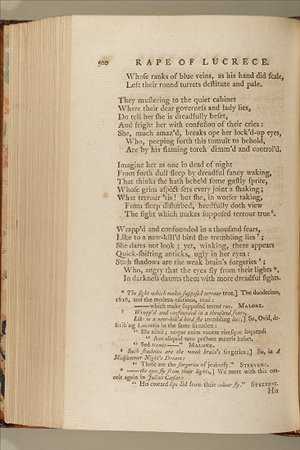 500 RAPE OF LUCRECE.
Whose ranks of blue veins, as his hand did scale,
Left their round turrets destitute and pale.
They mustering to the quiet cabinet
Where their dear governess and lady lies,
Do tell her she is dreadfully beset,
And fright her with confusion of their cries:
She, much amaz'd, breaks ope her lock'd-up eyes,
Who, peeping forth this tumult to behold,
Are by his flaming torch dimm'd and control'd.
Imagine her as one in dead of night
From forth dull sleep by dreadful fancy waking,
That thinks she hath beheld some gastly sprite,
Whose grim aspéct sets every joint a shaking;
What terrour 'tis! but she, in worser taking,
From sleep disturbed, heedfully doth view
The sight which makes supposed terrour true.
Wrapp'd and confounded in a thousand fears,
Like to a new-kill'd bird she trembling lies;
She dares not look; yet, winking, there appears
Quick-shifting anticks, ugly in her eyes:
Such shadows are the weak brain's forgeries;
Who, angry that the eyes fly from their lights,
In darkness daunts them with more dreadful sights.
The sight which makes supposed terrour true.] The duodecimo,
1616, and the modern editions, read:
——which make supposed terror rue. MALONE.
Wrapp'd and confounded in a thousand fears,
Like to a new-kill'd bird she trembling lies;] So, Ovid, de-
scribing Lucretia in the same situation:
" Illa nihil; neque enim vocem viresque loquendi
" Aut aliquid toto pectore mentis habet.
" Sed tremit——" MALONE.
Such shadows are the weak brain's forgeries;] So, in A
Midsummer Night's Dream:
" These are the forgeries of jealousy." STEEVENS.
——the eyes fly from their lights,] We meet with this con-
ceit again in Julius Caesar:
" His coward lips did from their colour fly." STEEVENS.
His